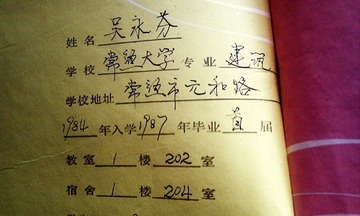 姓名 吴永芬
学校 常熟大学 专业 建
学校地址 常熟市元和路
1984年入学1987年毕业 首 届
教室 1 楼 202 室
宿舍 1 楼 204 室